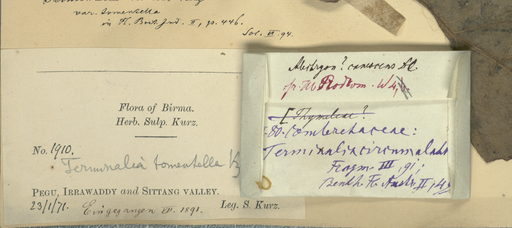 var. tomentella
in H. Brit. Ind. II, p. 446.
Flora of Birma.
Herb. Sulp. Kurz.
No. 1910.
Terminalia tomentella Kz
PEGU, IRRAWADDY and SITTANG VALLEY.
23/1/71. Eingegangen VII. 1891. Leg. S. Kurz.
canescens DC.
[Thymeleae?
80. Combretaceae:
Terminalia circumalata
Fragm. III, 91;
Benth. Fl. Austr. II,